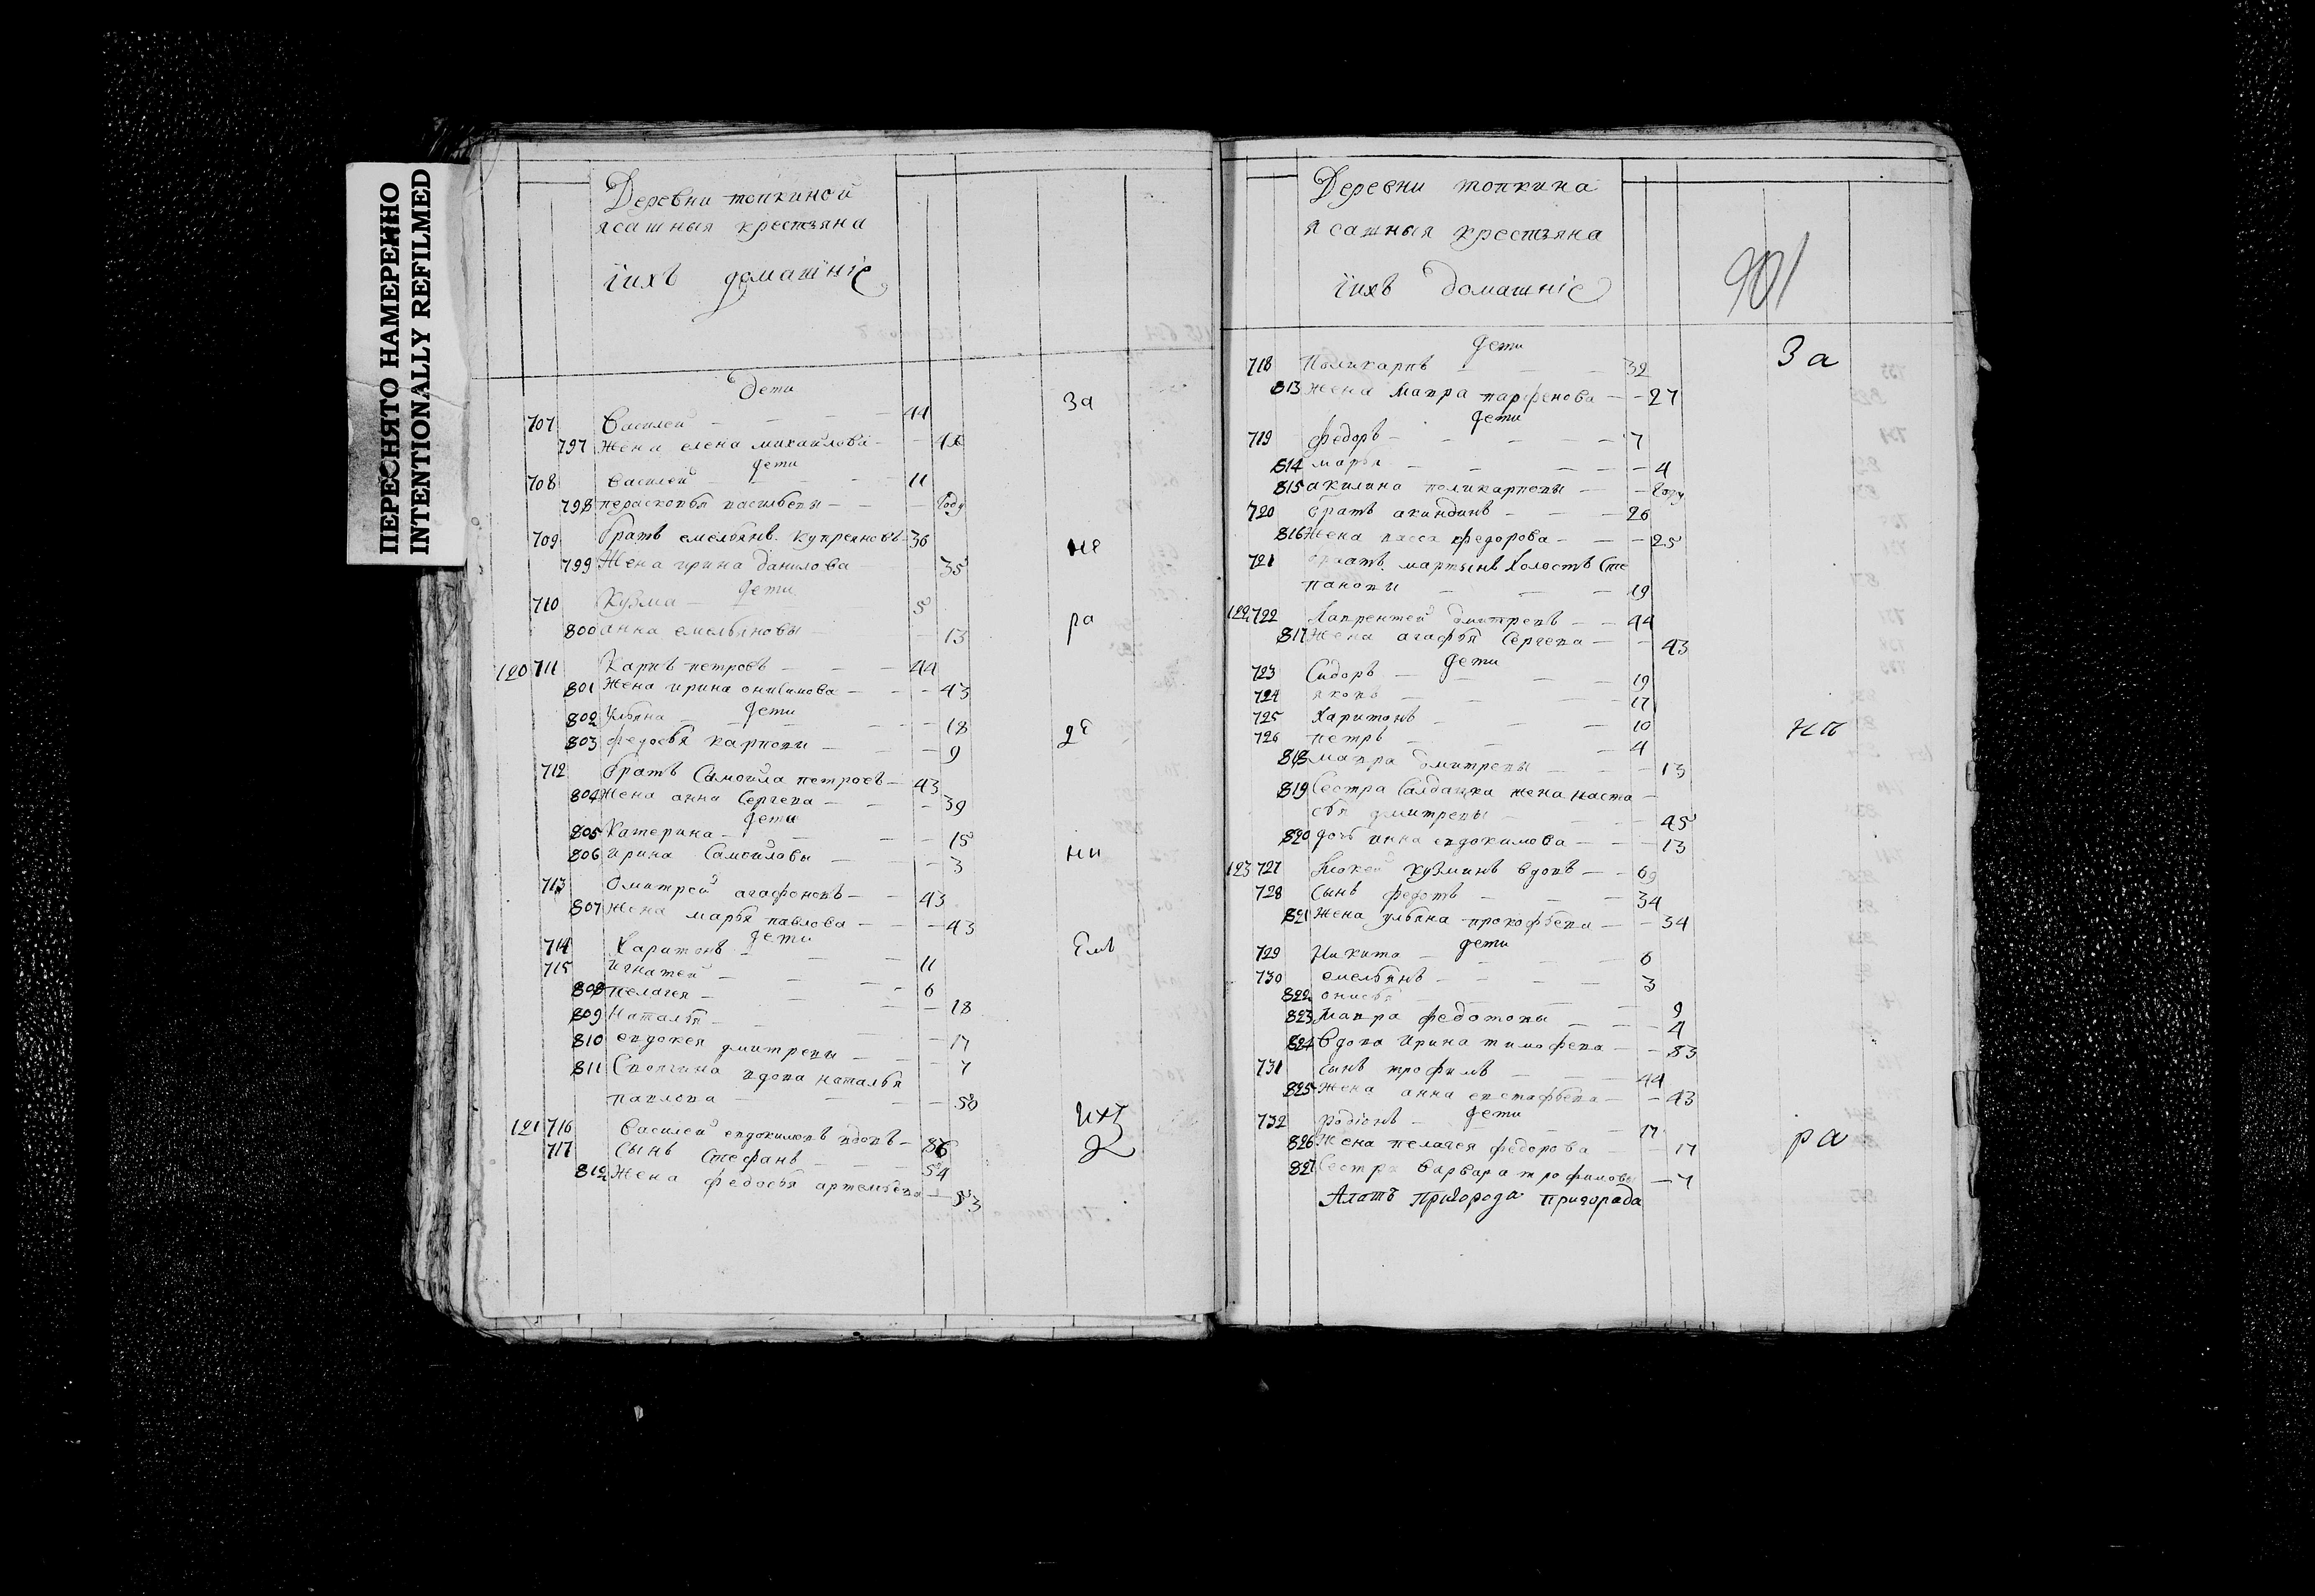 ПЕРЕСНЯТО НАМЕРЕННО
INTENTIONALLY REFILMED
Деревни топкиной
ясашныя крестьяна
їихъ домашніе
Дети
За
707 Василей - - - 44
797 Жена елена михаилова -
дети
708 Василей - - - 11
798 пераскопья васильевы - - году
709 братъ емельянъ купреяновъ 36
не
799 Жена ирина данилова 35
дети
710 Кузма - 5
ра
800 анна емельяновы - 13
120 711 Карпъ петровъ - - - 44
801 Жена ирина онисимова - - - 43
дети
802 Ульяна - - - 18
де
803 федосья карповы - - - 9
712 братъ Самоила петровъ - 43
804 Жена анна Сергева - - - 39
дети
805 Катерина - - - 15
806 ирина Самоиловы - - 3
ни
713 Дмитрей агафоновъ - - 43
807 Жена марья павлова - - 43
дети
714 Харитонъ - - - 11
емъ
715 игнатей - - - 6
808 пелагея - - - 18
809 Наталья - - - 17
810 евдокея дмитревы - - 7
811 вдова наталья
павлова - - - 50
ихъ
121 716 Василей евдокимовъ вдовъ - 86
717 Сынъ Стефанъ - - - 54
812 Жена федосья артемьева - 53
Деревни топкина
ясашныя крестьяна
їихъ домашніе
901
дети
За
718 Поликарпъ - - - 32
813 Жена Мавра парфенова - - 27
дети
719 федоръ - - - - 7
814 марья - - - - 4
815 акилина поликарповы - - году
720 братъ акиндинъ - - - 26
816 Жена васса федорова - - - 25
721 братъ мартынъ холостъ Сте
пановы - - - 19
122 722 Лаврентей дмитревъ - - 44
817 Жена агафья Сергева - - 43
дети
723 Сидоръ - - - 19
724 яковъ - - - 17
725 Харитонъ - - - 10
726 петръ - - - 4
818 мавра дмитревы - - - 13
819 Сестра Салдацка жена наста -
сья дмитревы - - - 45
820 дочь анна евдокимова - - - 13
123 727 Мокей кузминъ вдовъ - - 69
728 Сынъ федотъ - - - 34
821 Жена ульяна прокофьева - - 34
дети
729 Никита - - - 6
730 емельянъ - - - 3
822 онисья - - - 9
823 Мавра федотовы - - - 4
824 Вдова ирина тимофева - - 83
731 сынъ трофимъ - - - 44
825 Жена анна евстафьева - - 43
дети
732 родіонъ - - - 17
826 Жена пелагея федорова - - 17
ра
827 Сестра варвара трофимовы - 7
Алатъ пригорода пригорада